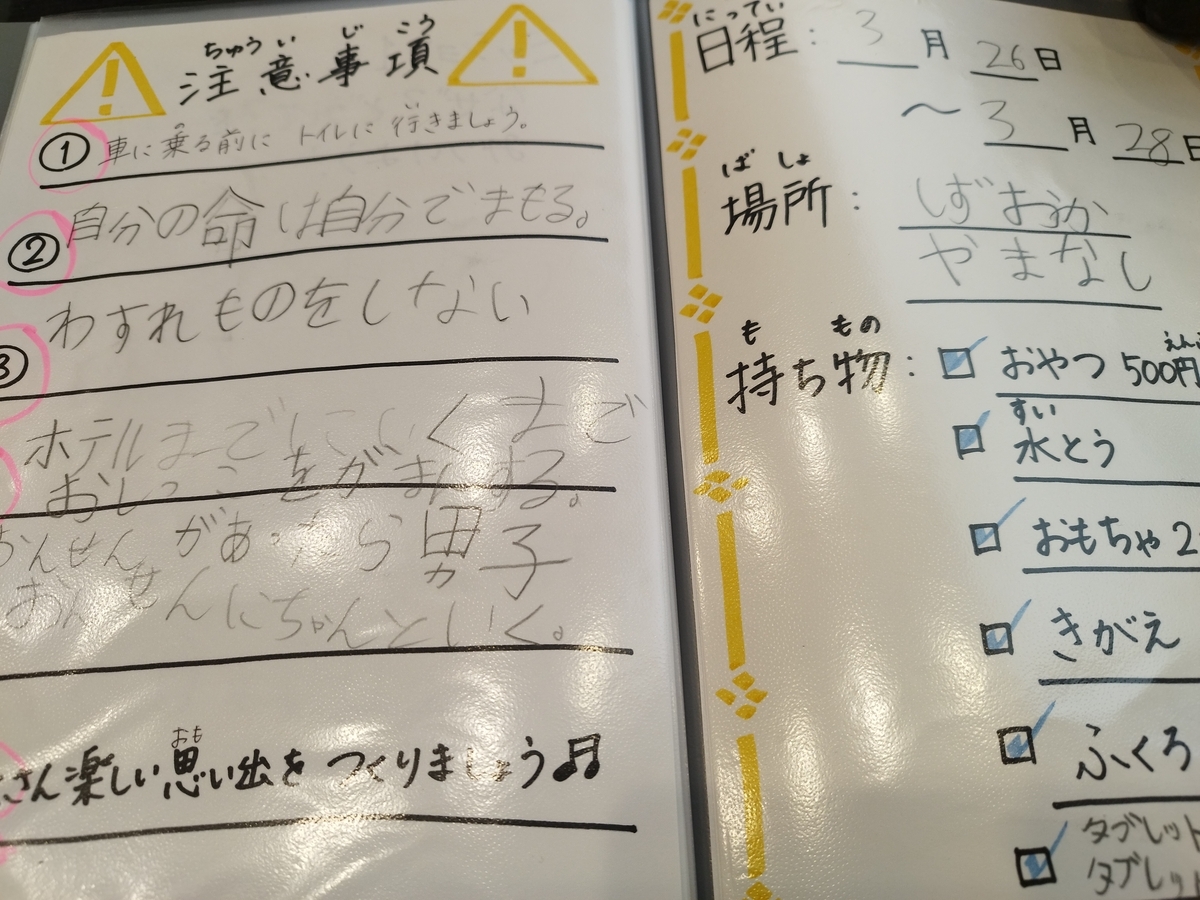 ちゅう い じ こう
注意事項
① 車に乗る前に トイレに 行きましょう。
② 自分の命は自分でまもる。
③ わすれものをしない
ホテルまでにいくまで
おしっこをがまんする。
おんせんがあったら男子
おんせんにちゃんといく。
さん楽しい思い出をつくりましょう♫
にってい
日程: 3月 26日
〜 3月 28日
ば しょ
場所: しずおか
やまなし
も もの
持ち物: ☑ おやつ 500円
すい
☑ 水とう
☑ おもちゃ 2
☑ きがえ
☑ ふくろ
☑ タブレット
タブレット